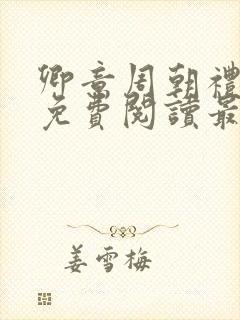 卿章周朝禮
免費閱讀最
姜雪梅